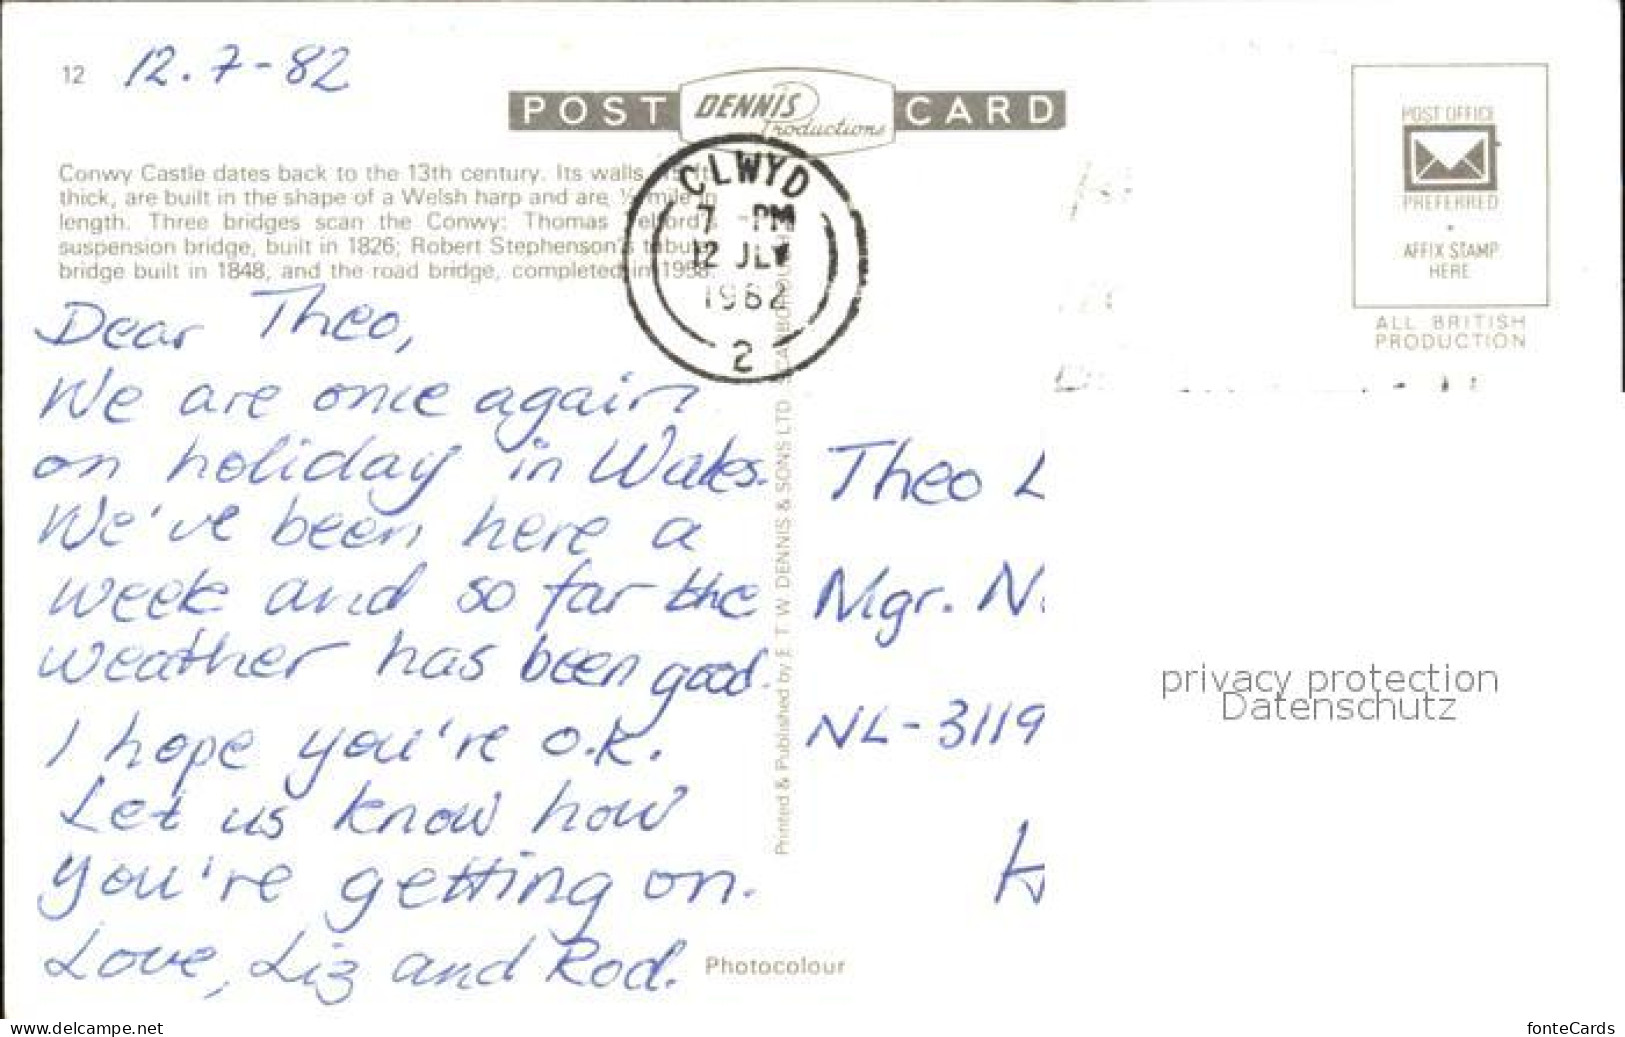 12
12.7-82
POST DENNIS Productions CARD
Conwy Castle dates back to the 13th century. Its walls
thick, are built in the shape of a Welsh harp and are ½ mile in
length. Three bridges scan the Conwy: Thomas Telford's
suspension bridge, built in 1826; Robert Stephenson's tubular
bridge built in 1848, and the road bridge, completed in 1958.
CLWYD
7 -PM
12 JLY
1982
2
POST OFFICE
PREFERRED
AFFIX STAMP
HERE
ALL BRITISH
PRODUCTION
Dear Theo,
We are once again
on holiday in Wales.
We've been here a
week and so far the
weather has been good.
I hope you're o.k.
Let us know how
you're getting on.
Love, Liz and Rod.
Printed & Published by E. T. W. DENNIS & SONS LTD.
Theo L
Mgr. N
NL-3119
privacy protection
Datenschutz
Photocolour
www.delcampe.net
fonteCards